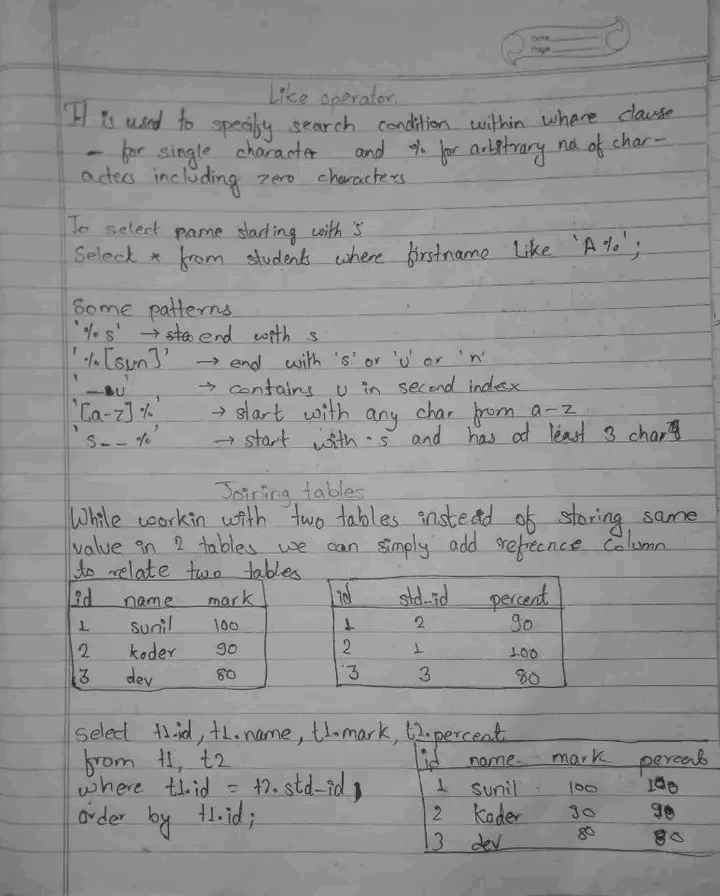 Date
Page
Like operator
It is used to specify search condition within where clause
- for single character and % for arbitrary no. of char-
acters including zero characters
To select name starting with 's'
Select * from students where firstname like 'A%';
Some patterns
'%s' → end with s
'%[sun]' → end with 's' or 'u' or 'n'
'_u' → contains u in second index
'[a-z]%' → start with any char from a-z
's__%' → start with s and has at least 3 char
Joining tables
While workin with two tables instead of storing same
value in 2 tables we can simply add refrecnce column
to relate two tables
id name mark
1 sunil 100
2 koder 90
3 dev 80
id std-id percent
1 2 90
2 1 100
3 3 80
select t1.id, t1.name, t1.mark, t2.percent
from t1, t2
where t1.id = t2.std-id
order by t1.id;
id name mark percent
1 sunil 100 100
2 koder 90 90
3 dev 80 80